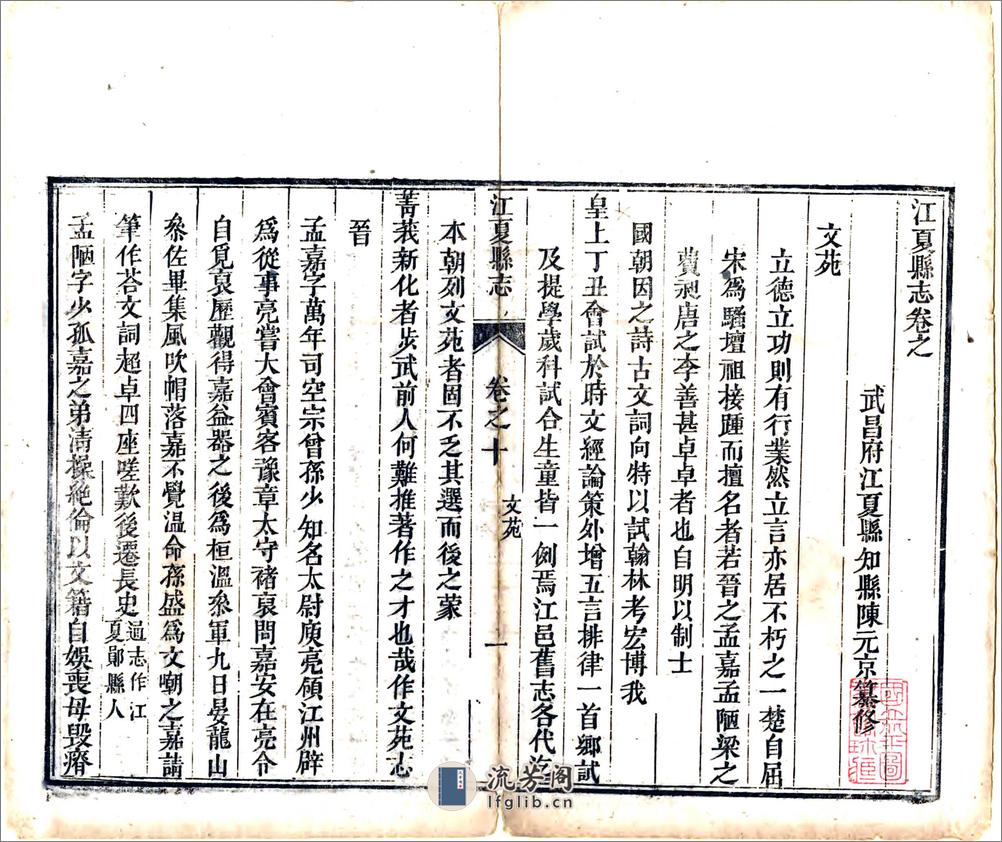 江夏縣志卷之
武昌府江夏縣知縣陳元京纂修
文苑
立德立功則有行業然立言亦居不朽之一楚自屈
宋爲騷壇祖接踵而擅名者若晉之孟嘉孟陋梁之
費昶唐之李善甚卓卓者也自明以制士
國朝因之詩古文詞向特以試翰林考宏博我
皇上丁丑會試於時文經論策外增五言排律一首鄉試
及提學歲科試合生童皆一例焉江邑舊志各代
江夏縣志
卷之十
文苑
一
本朝列文苑者固不乏其選而後之蒙
菁莪新化者步武前人何難推著作之才也哉作文苑志
晉
孟嘉字萬年司空宗曾孫少知名太尉庾亮領江州辟
爲從事亮嘗大會賓客豫章太守褚裒問嘉安在亮令
自覓裒歷觀得嘉益器之後爲桓溫叅軍九日晏龍山
叅佐畢集風吹帽落嘉不覺溫命孫盛爲文嘲之嘉請
筆作荅文詞超卓四座嗟歎後遷長史通志作江
夏鄖縣人
孟陋字少孤嘉之弟清操絕倫以文籍自娛喪母毀瘠
流芳阁
lfglib.cn